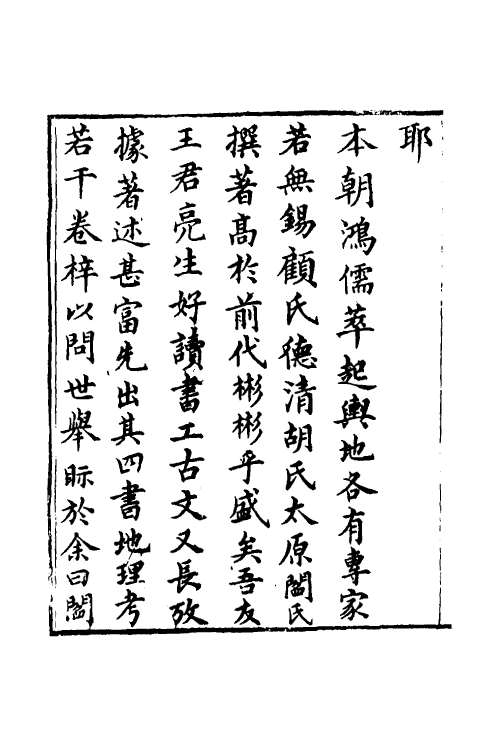 耶
本朝鴻儒萃起輿地各有專家
若無錫顧氏德清胡氏太原閻氏
撰著髙於前代彬彬乎盛矣吾友
王君亮生好讀書工古文又長攷
據著述甚富先出其四書地理考
若干卷梓以問世舉眎於余曰閻